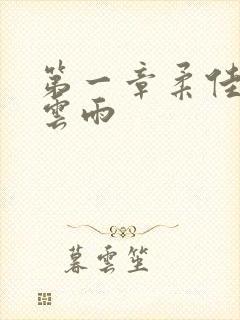 第一章柔佳
雲雨
暮雲笙